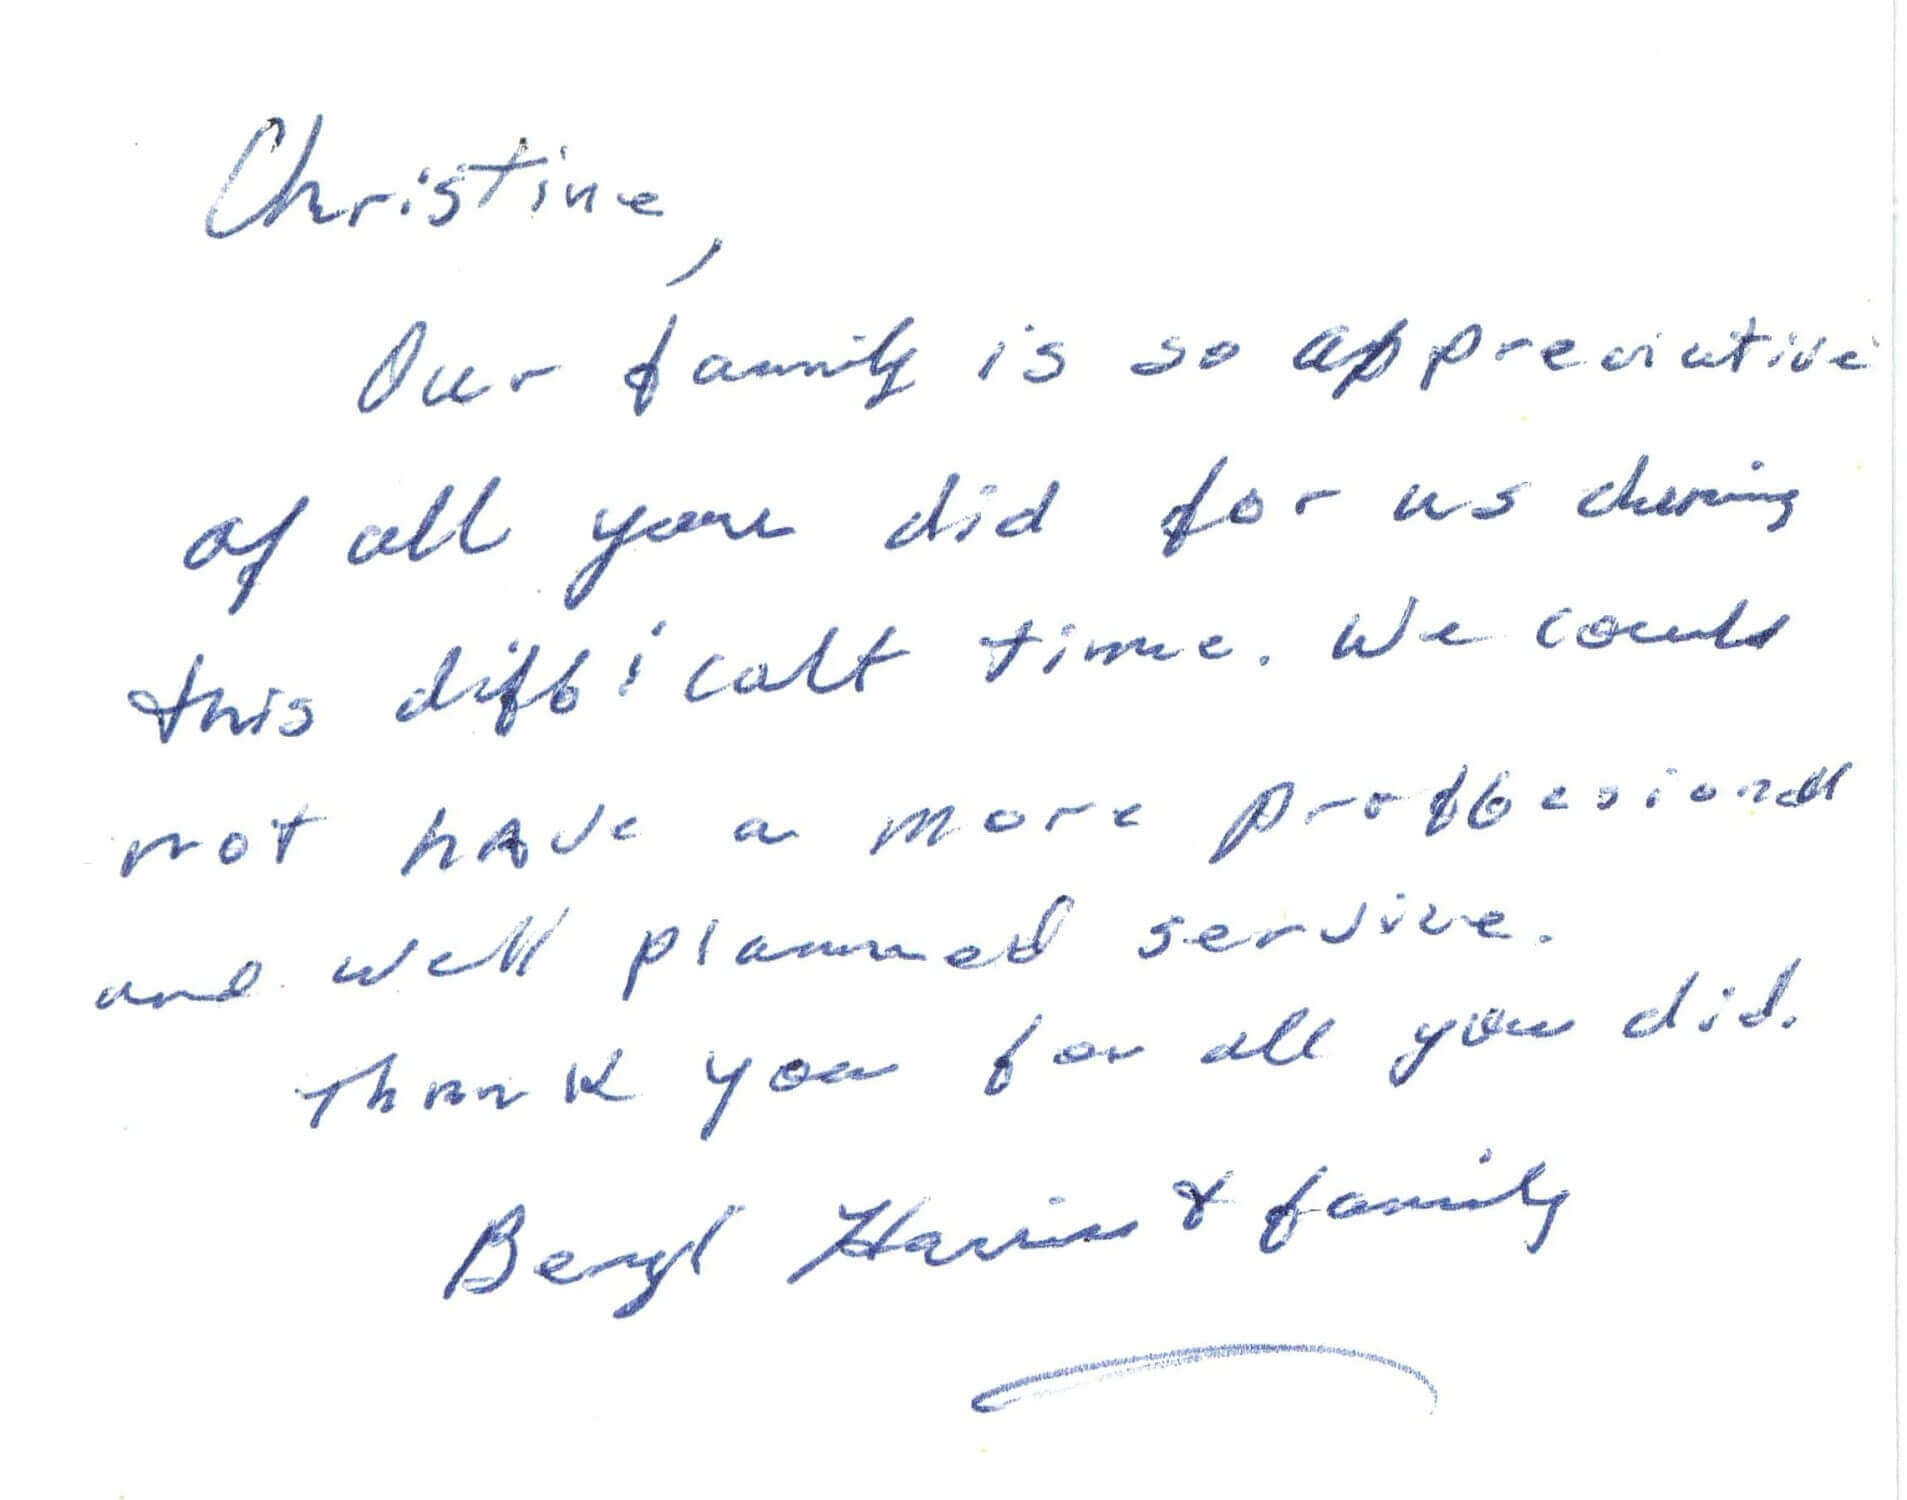 Christine,
Our family is so appreciative
of all you did for us during
this difficult time. We could
not have a more proffesional
and well planned service.
Thank you for all you did.
Beryl Harris & family